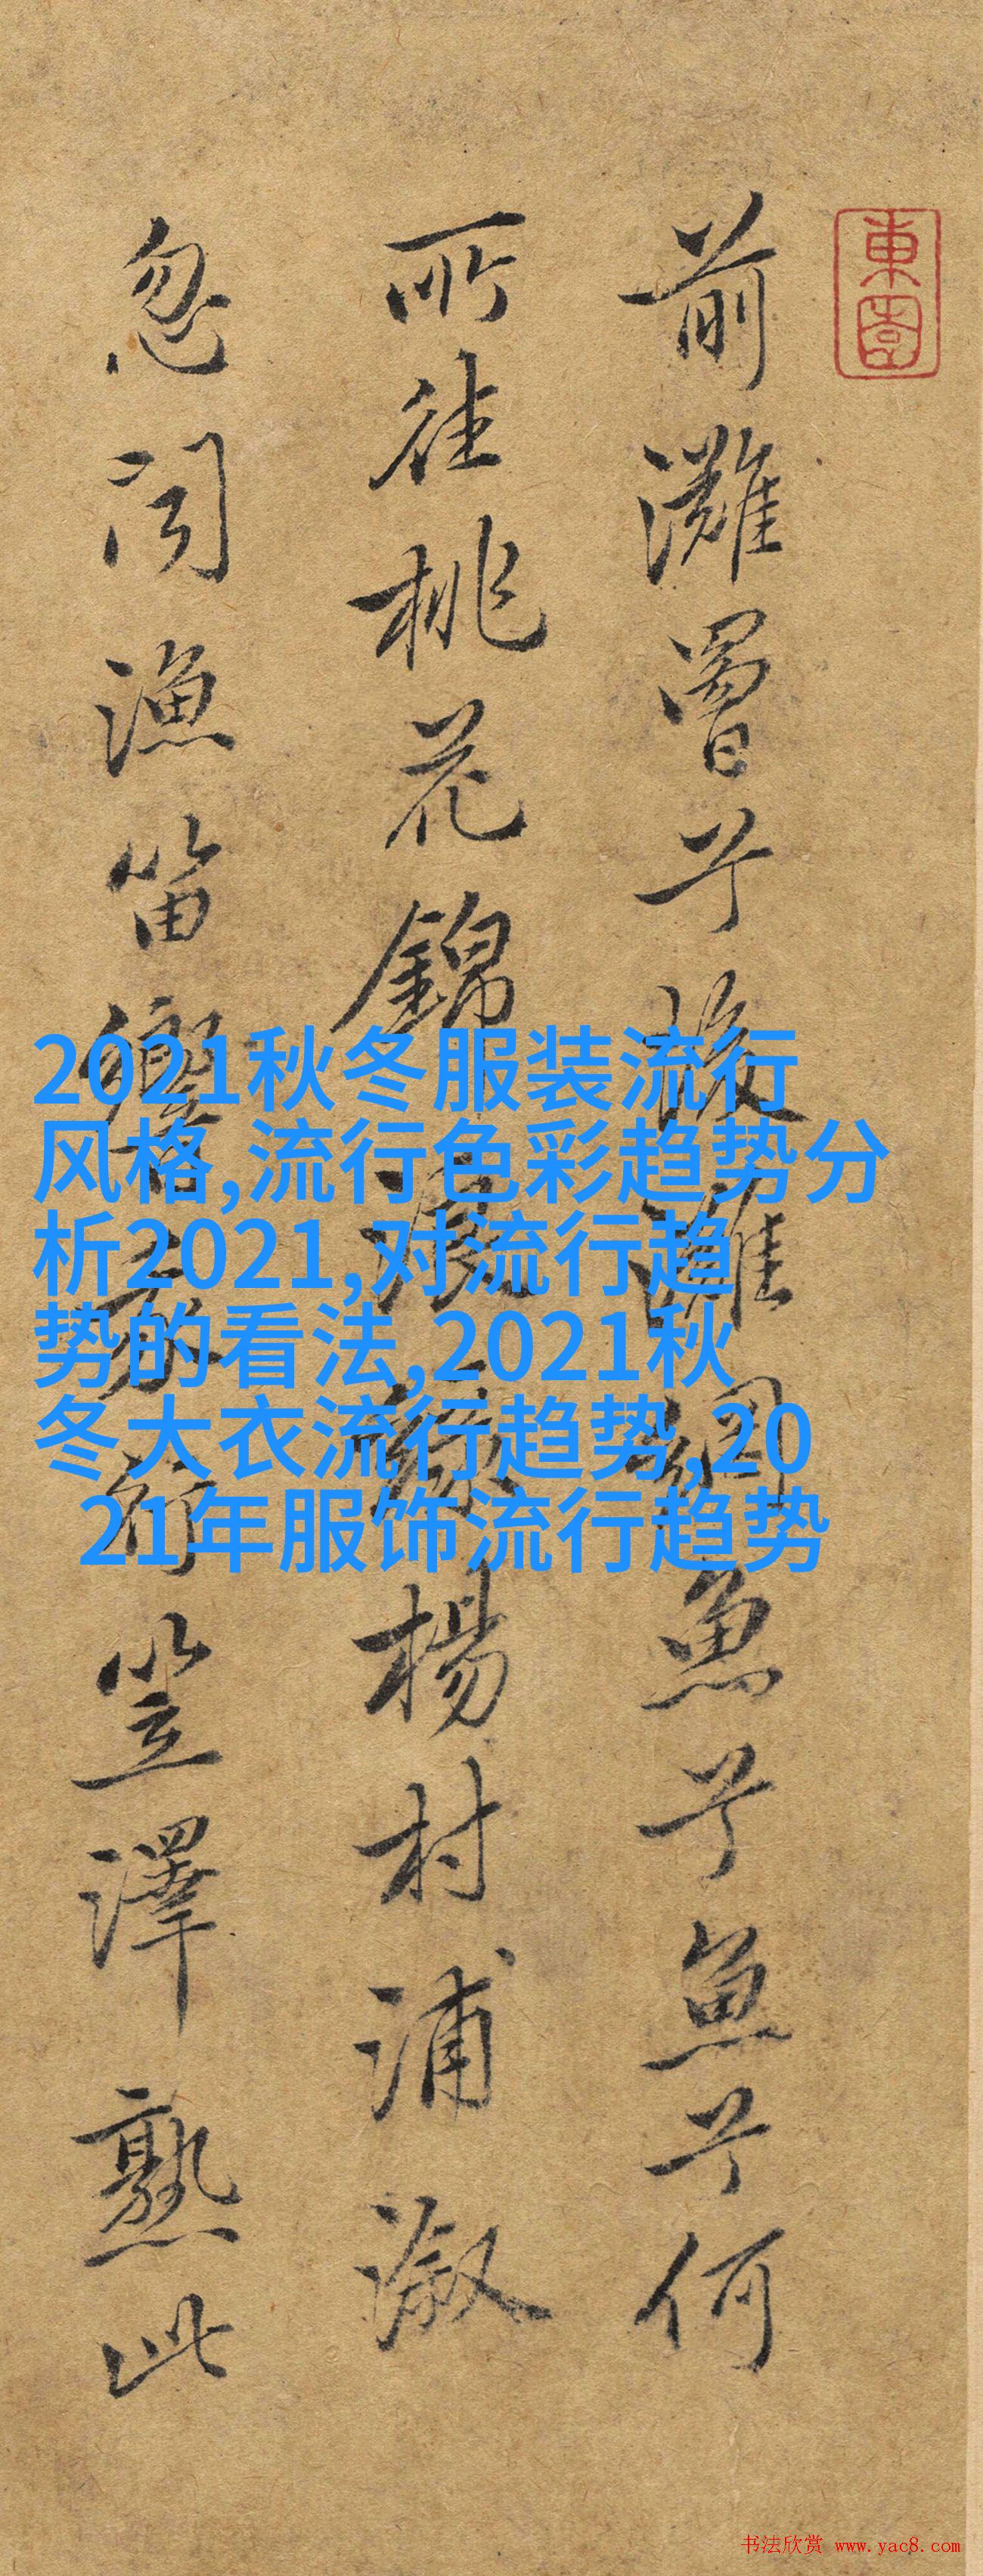 東
前灘罾兮後灘網魚兮魚兮何
所往桃花錦浪綠楊村浦溆
忽聞漁笛響行笠澤熟此
2021秋冬服装流行
风格,流行色彩趋势分
析2021,对流行趋
势的看法,2021秋
冬大衣流行趋势,20
21年服饰流行趋势
书法欣赏 www.yac8.com